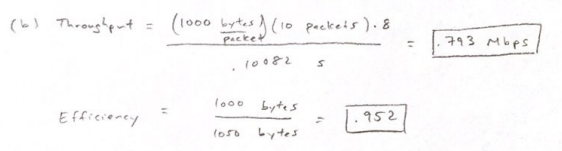 (b) Throughput = (1000 bytes/packet)(10 packets).8 / .10082 s = .793 Mbps
Efficiency = 1000 bytes / 1050 bytes = .952